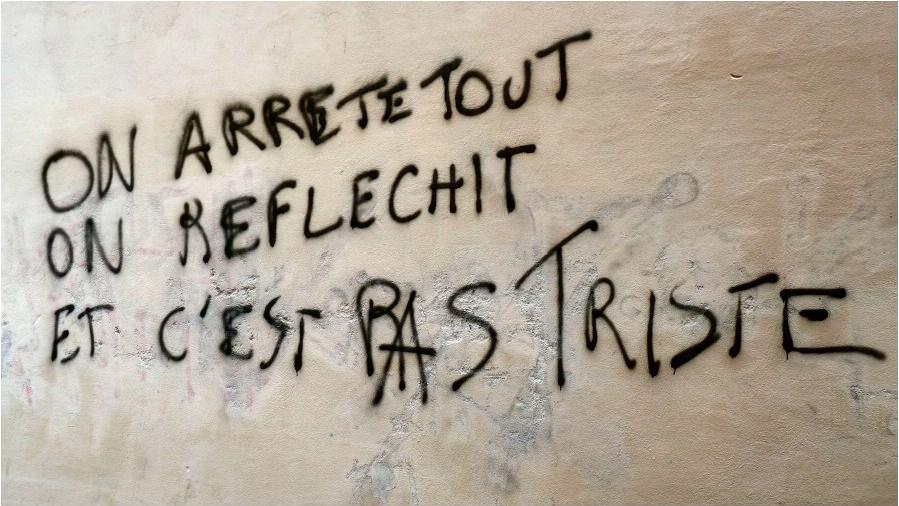 ON ARRETE TOUT
ON REFLECHIT
ET C'EST PAS TRISTE